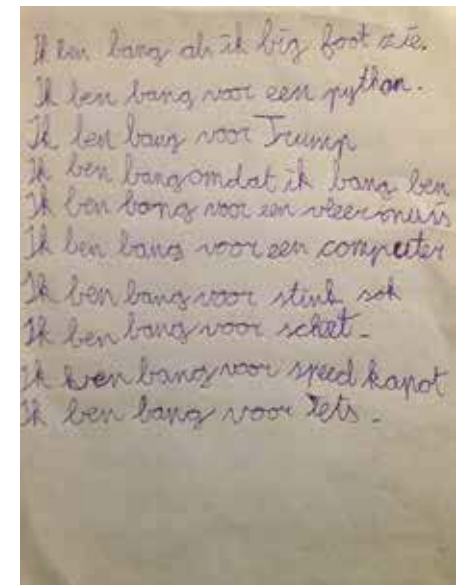 Ik ben bang als ik big foot zie.
Ik ben bang voor een python.
Ik ben bang voor Trump
Ik ben bang omdat ik bang ben
Ik ben bang voor een vleermuis
Ik ben bang voor een computer
Ik ben bang voor stink sok
Ik ben bang voor scheet.
Ik ben bang voor speed kapot
Ik ben bang voor iets.